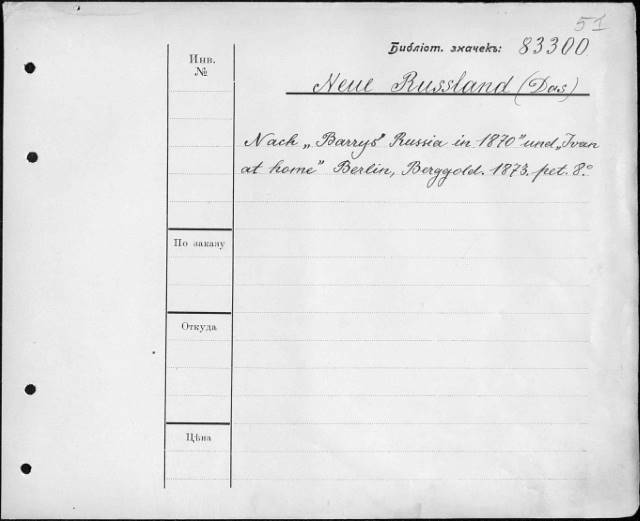 51
Библіот. значекъ: 83300
Инв.
№
Neue Russland (Das)
Nach „Barrys" Russia in 1870" und „Ivan
at home" Berlin, Berggold. 1873. pet. 8.°
По заказу
Откуда
Цѣна